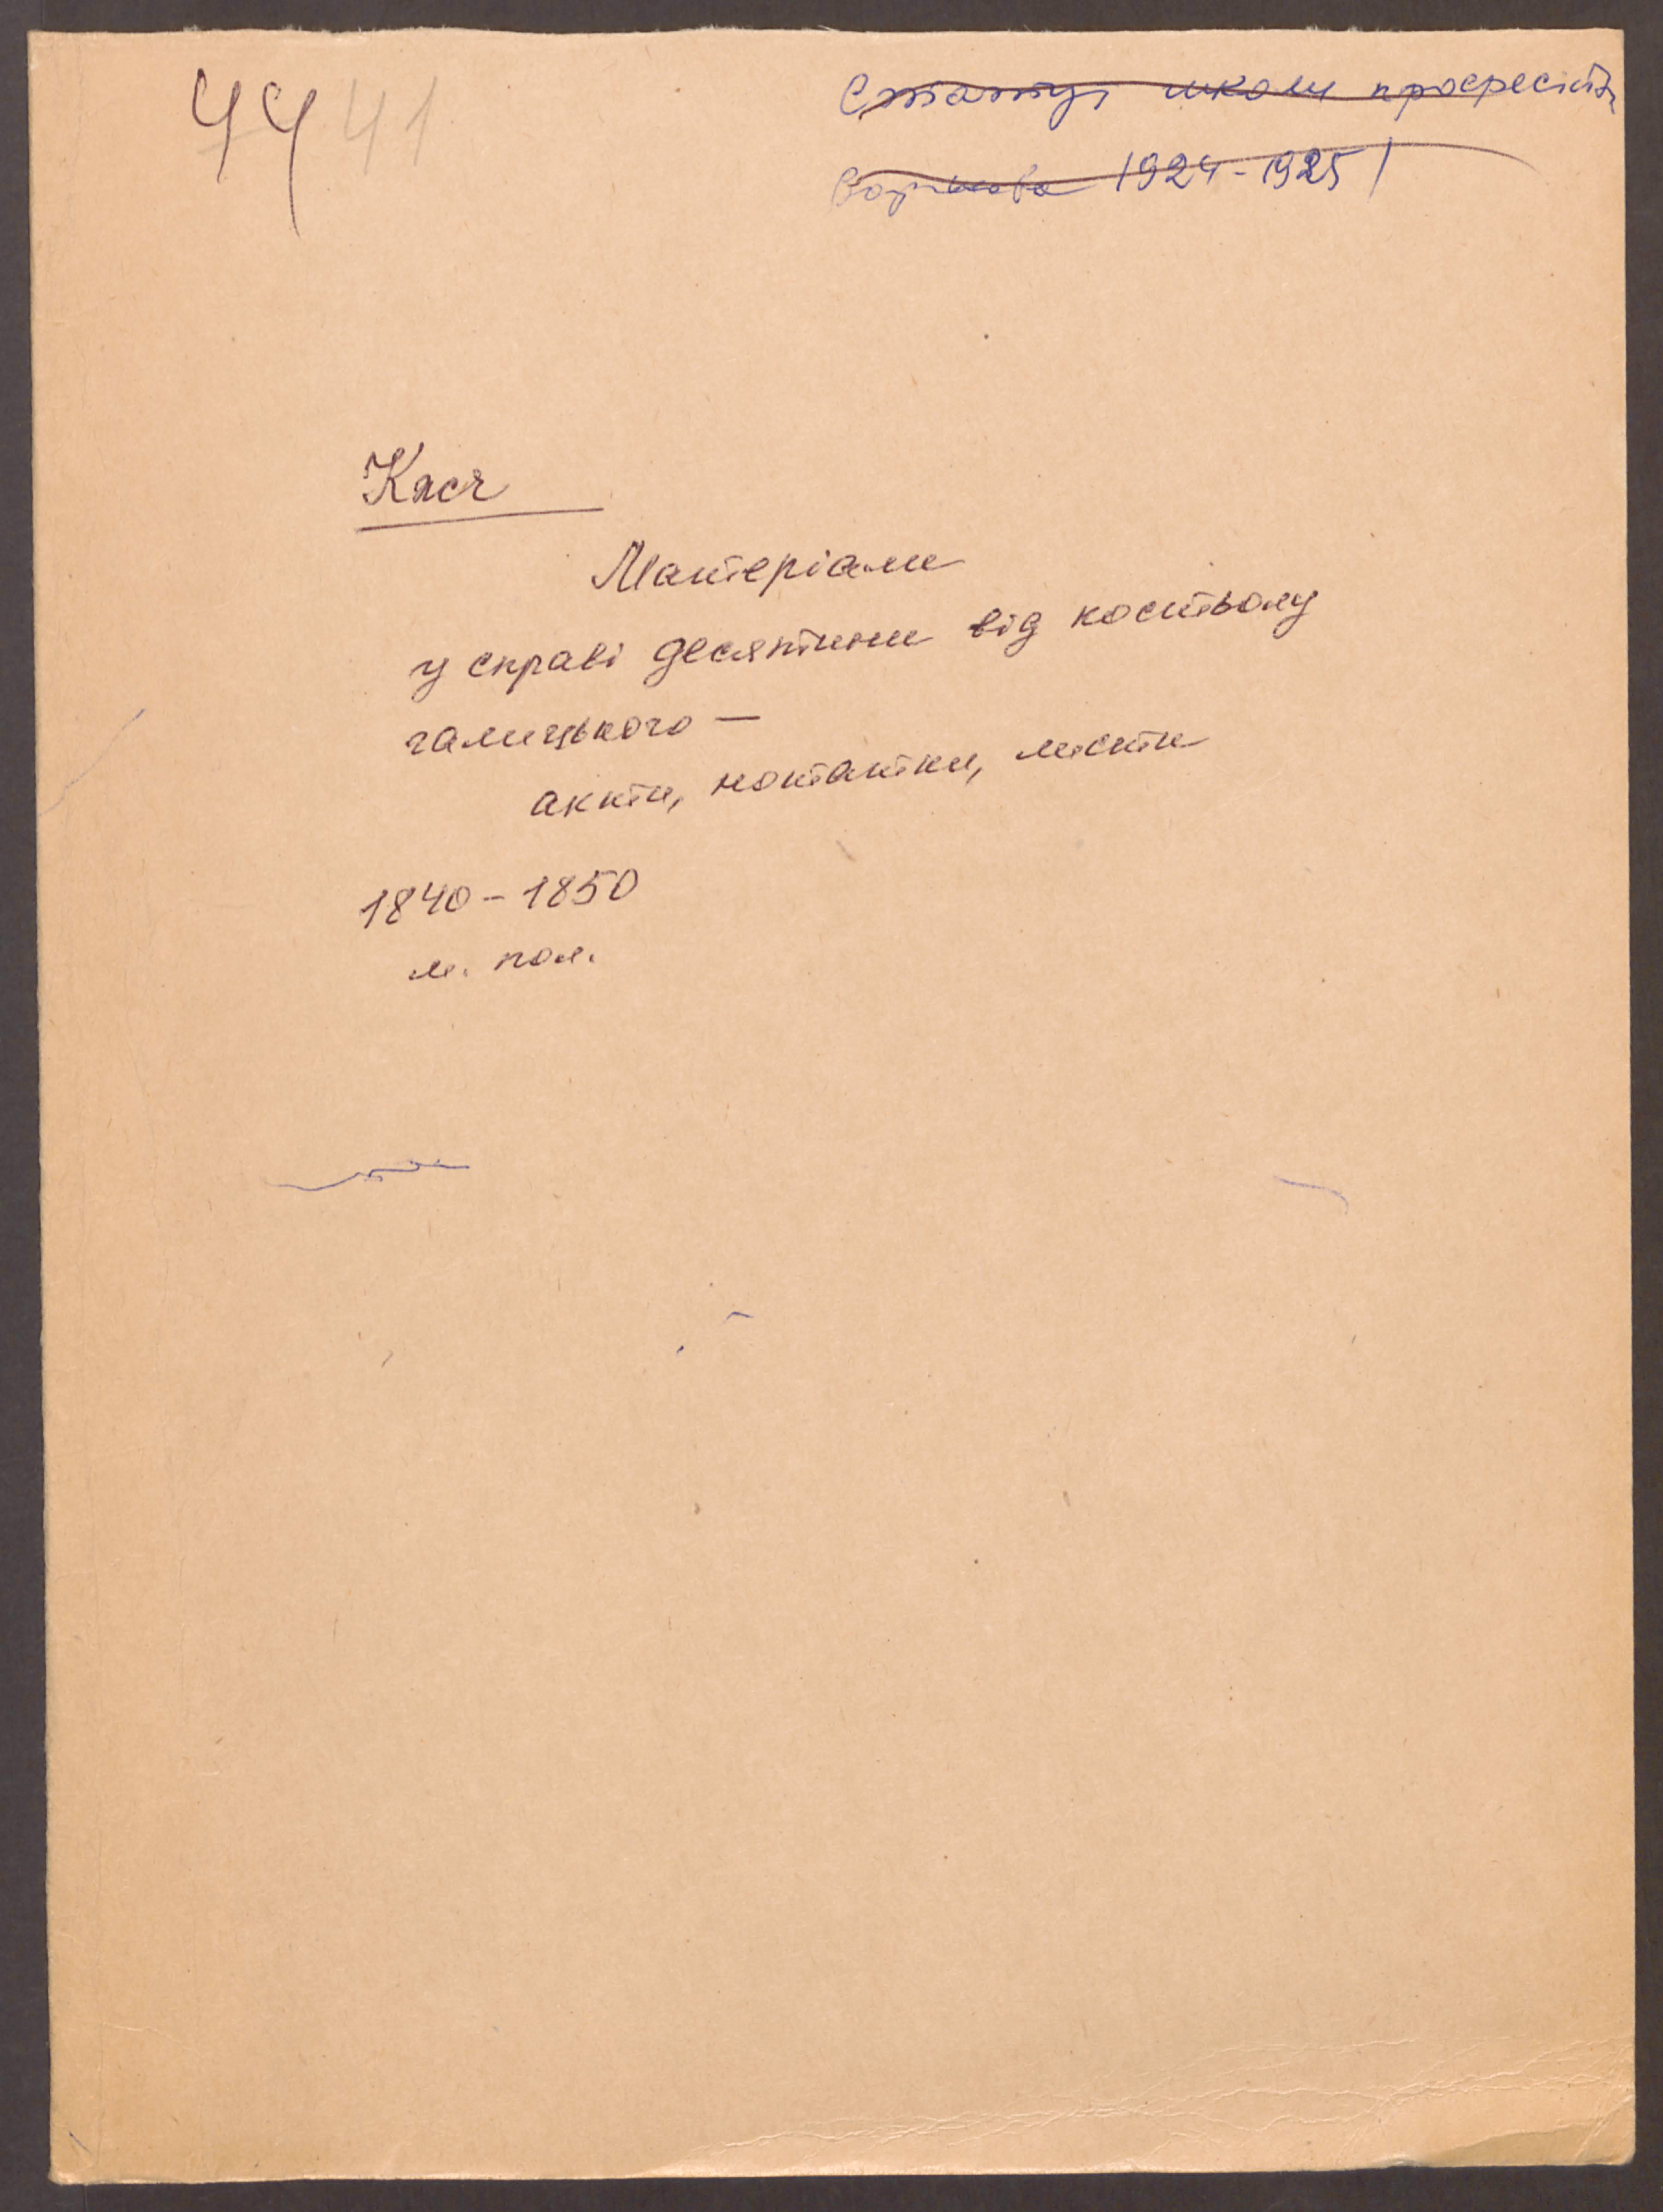 44 41
Статут школи професійн
1924-1925
Кляси
Матеріали
у справі десятини від костьолу
галицького —
акти, нотатки, листи
1840-1850
м. пол.